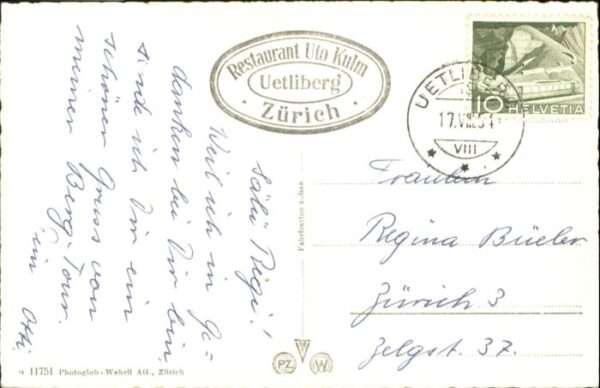 Restaurant Uto Kulm
Uetliberg
· Zürich ·
UETLIBERG
17.VIII.54
VIII
10 HELVETIA
Salü Regi!
Weil ich in Ge-
danken bei Dir bin
sende ich Dir ein
schöner Gruss von
meiner Berg-Tour.
Fräulein
Regina Büeler
Zürich 3
Zelgst. 37.
11751 Photoglob-Wehrli AG., Zürich
PZ W